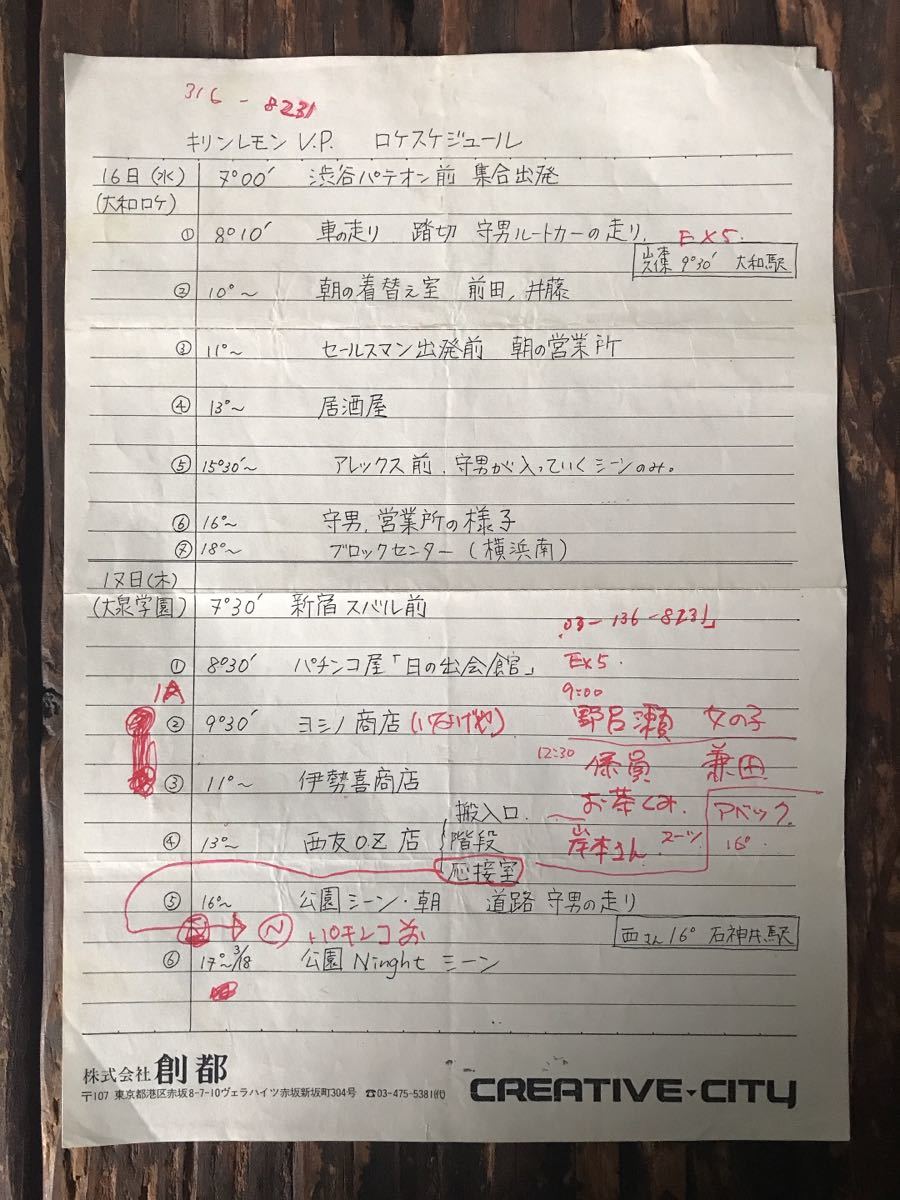 316-8231
キリンレモン V.P. ロケスケジュール
16日(水) 7°00′ 渋谷パテオン前 集合出発
(大和ロケ)
① 8°10′ 車の走り 踏切 守男ルートカーの走り. EX5.
9°30′ 大和駅
② 10°~ 朝の着替え室 前田、井藤
③ 11°~ セールスマン出発前 朝の営業所
④ 13°~ 居酒屋
⑤ 15°30′~ アレックス前、守男が入っていくシーンのみ。
⑥ 16°~ 守男、営業所の様子
⑦ 18°~ ブロックセンター(横浜南)
17日(木)
(大泉学園) 7°30′ 新宿スバル前
03-136-8231
① 8°30′ パチンコ屋「日の出会館」 EX5.
9:00
② 9°30′ ヨシノ商店 野呂瀬 女の子
12:30 係員 兼田
③ 11°~ 伊勢喜商店
お茶くみ. アベック
搬入口.
④ 13°~ 西友OZ店 階段 岸本さん スーツ 16°
応接室
⑤ 16°~ 公園シーン・朝 道路 守男の走り
N パチンコ前
西さん 16° 石神井駅
⑥ 17°~3/18 公園 Ninght シーン
株式会社 創都
〒107 東京都港区赤坂8-7-10ヴェラハイツ赤坂新坂町304号 ☎03-475-5381㈹
CREATIVE CITY